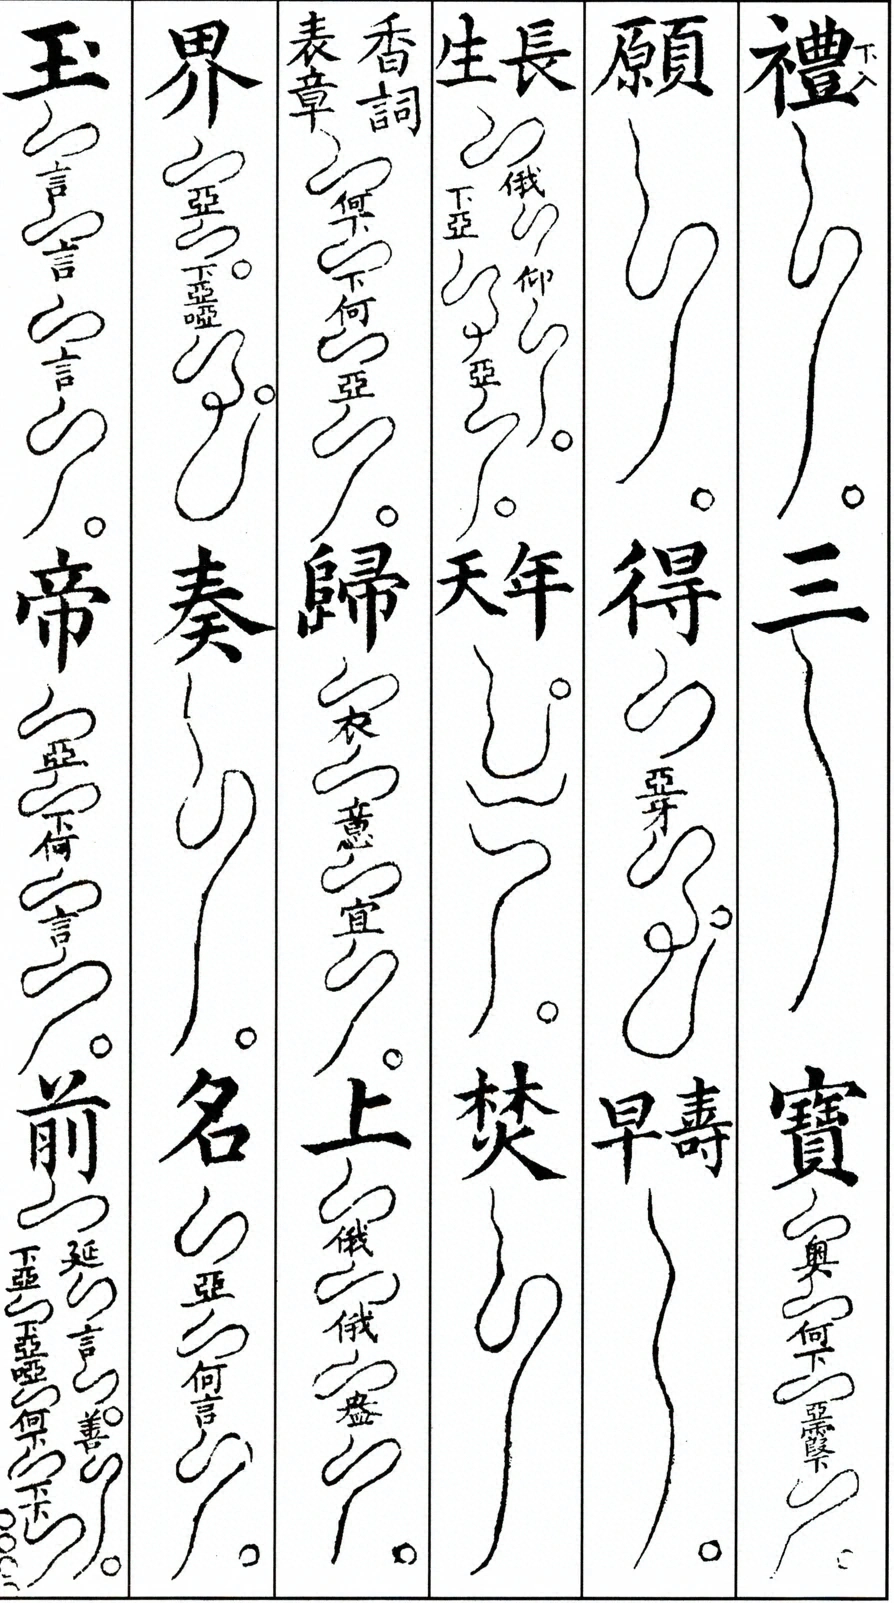 禮下入三寶奧何下亞霞下
願得亞牙壽早
長生俄仰下亞亞年天焚
香詞表章何下下何亞歸衣意宜上俄俄盎
界亞下亞啞奏名亞何言
玉言言言帝亞下何言前延言善下亞下亞啞何下下下